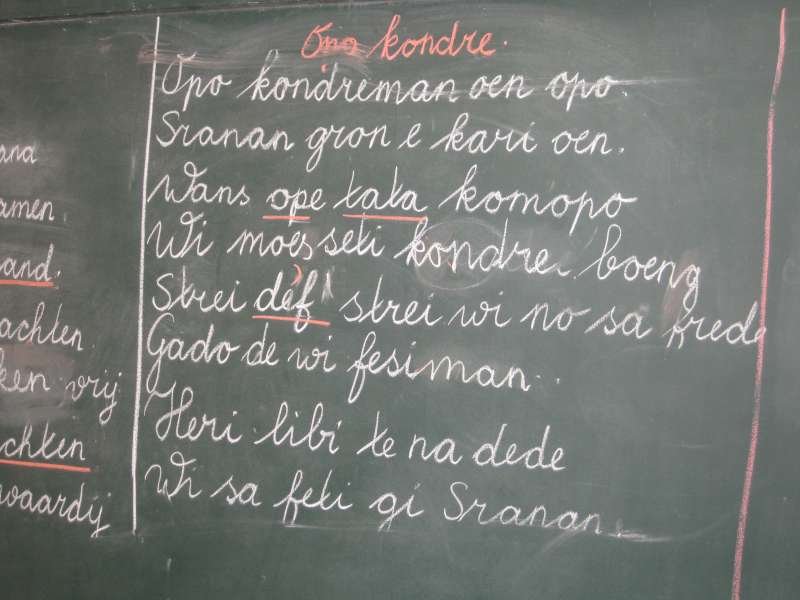 Opo kondre.
Opo kondreman oen opo.
Sranan gron e kari oen.
Wans ope tata komopo
Wi moes seti kondre boeng
Strei def strei wi no sa frede
Gado de wi fesiman.
Heri libi te na dede
Wi sa feti gi Sranan.
ana
amen.
and.
achten.
ken vrij
chten
waardij